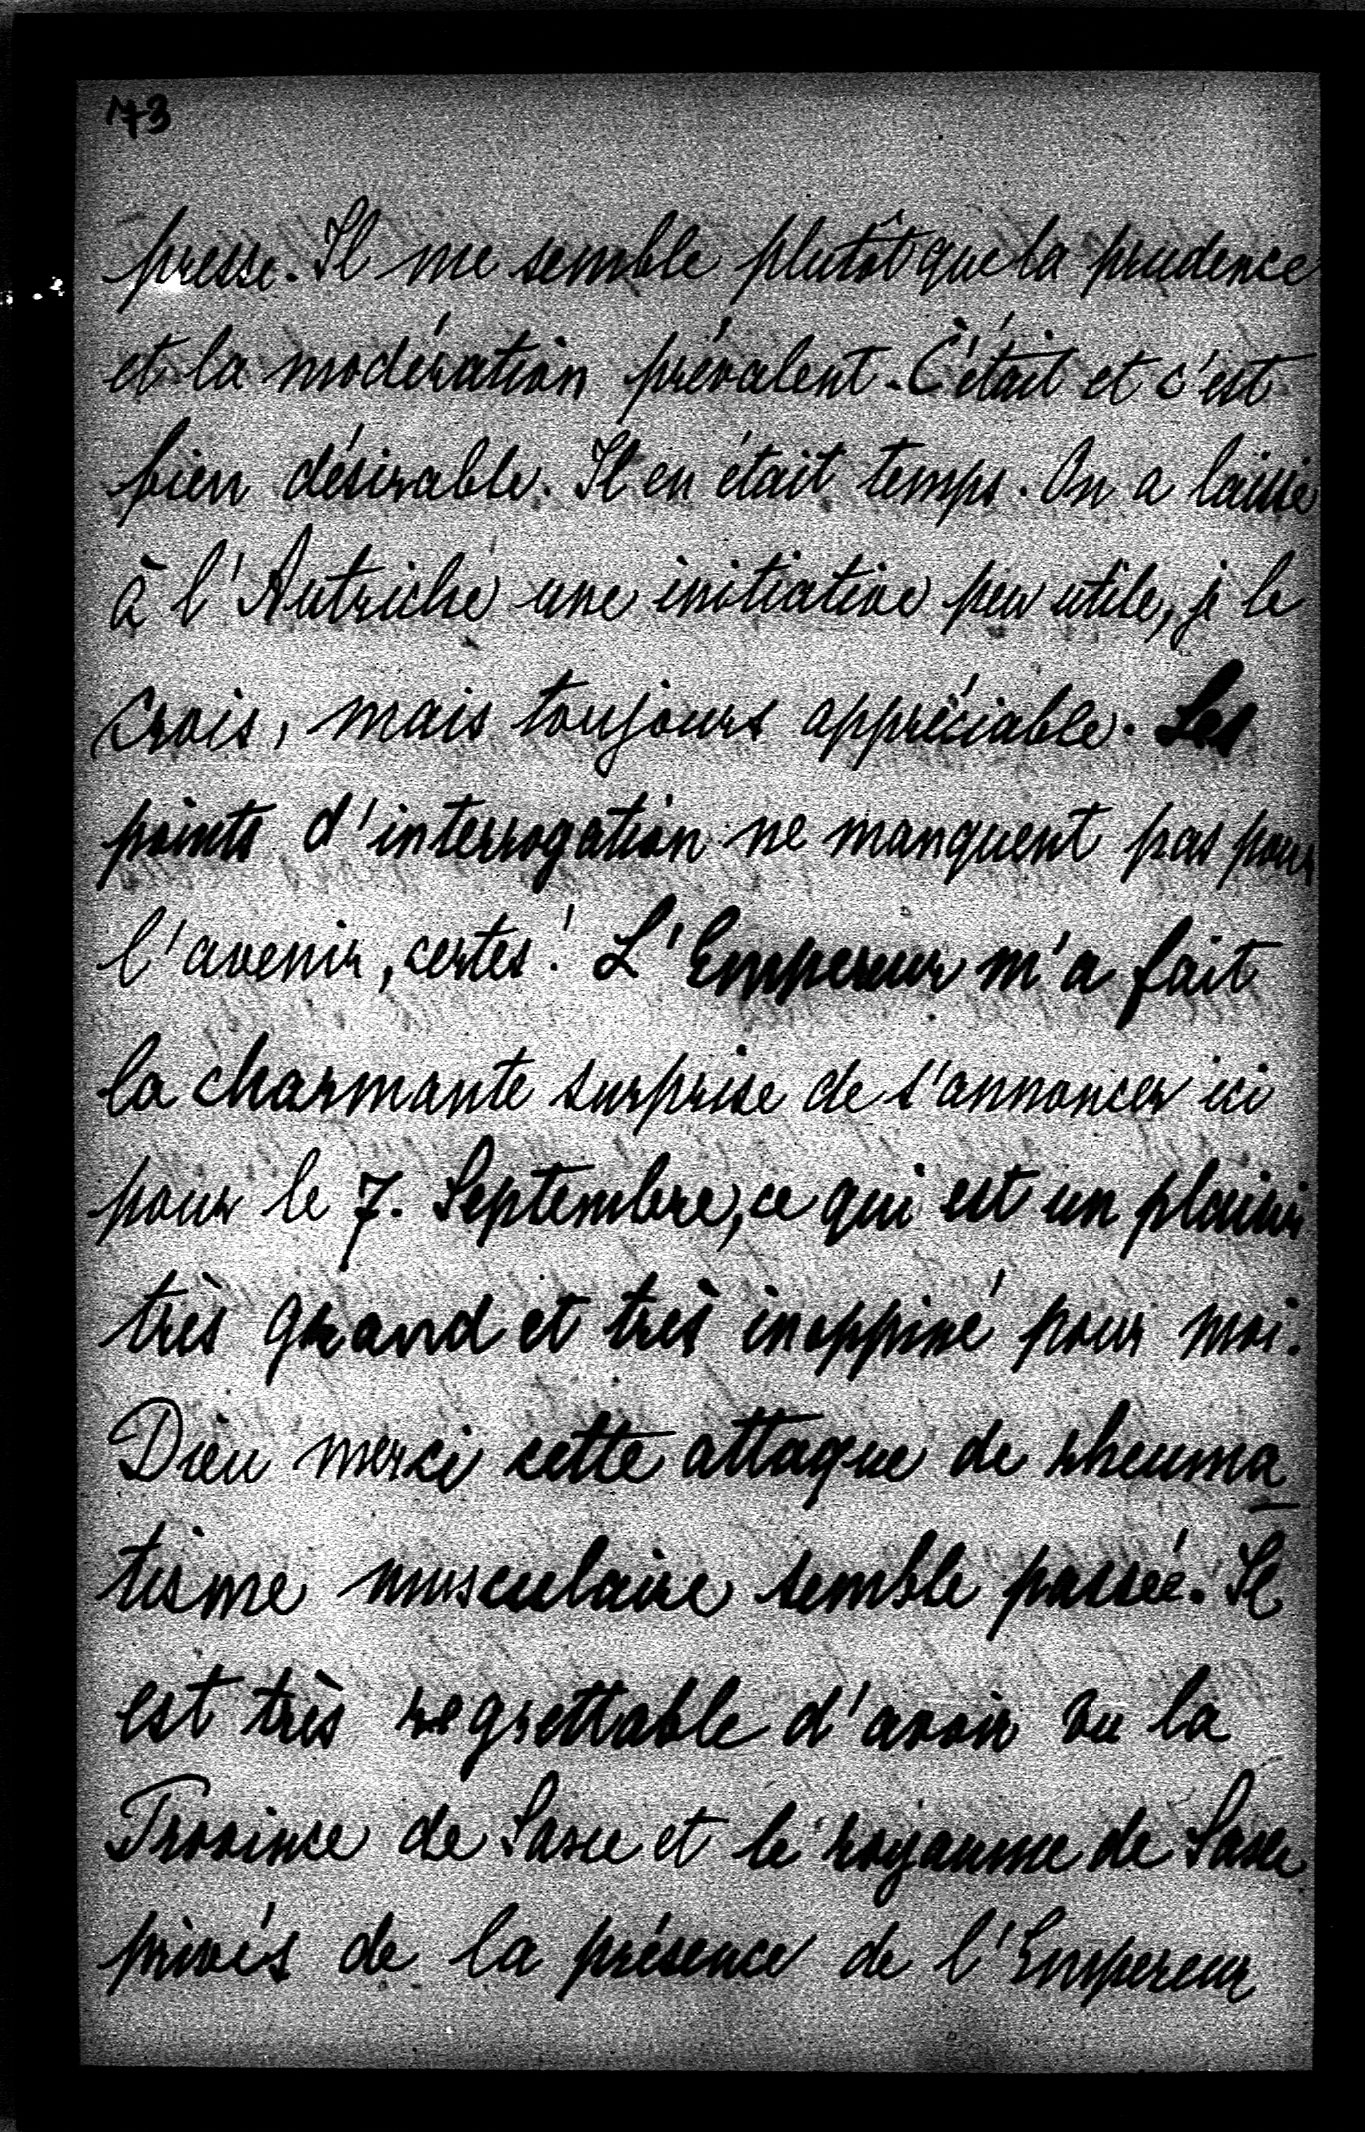 173
presse. Il me semble plutôt que la prudence
et la modération prévalent. C'était et c'est
bien désirable. Il en était temps. On a laissé
à l'Autriche une initiative peu utile, je le
crois, mais toujours appréciable. Les
points d'interrogation ne manquent pas pour
l'avenir, certes! L'Empereur m'a fait
la charmante surprise de s'annoncer ici
pour le 7. Septembre, ce qui est un plaisir
très grand et très inoppiné pour moi.
Dieu merci cette attaque de rheuma
tisme musculaire semble passée. Il
est très regrettable d'avoir vu la
Province de Saxe et le royaume de Saxe
privés de la présence de l'Empereur